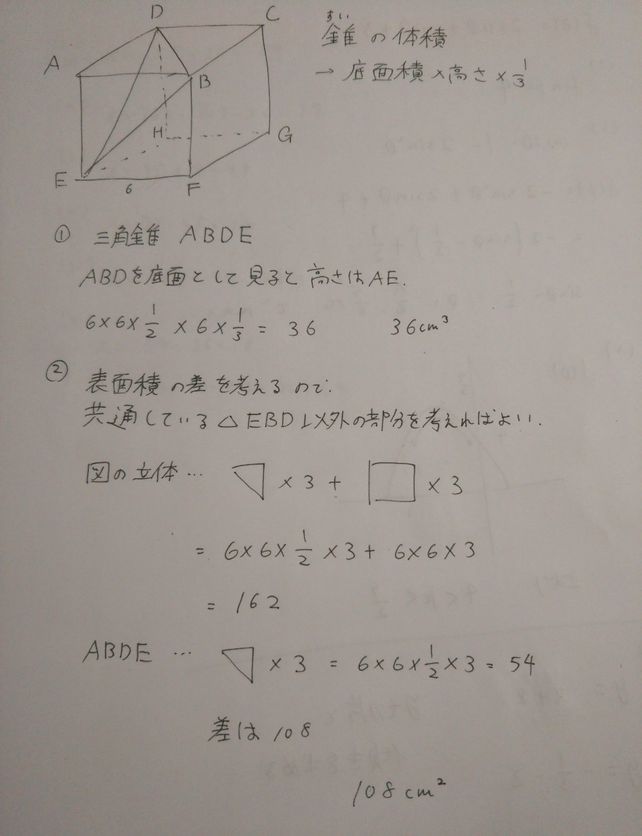 D
C
A
B
H
G
E
6
F
すい
錐の体積
→ 底面積×高さ×1/3
① 三角錐 ABDE
ABDを底面として見ると高さはAE.
6×6×1/2×6×1/3=36 36cm³
② 表面積の差を考えるので.
共通している△EBD以外の部分を考えればよい.
図の立体… ×3+ ×3
=6×6×1/2×3+6×6×3
=162
ABDE … ×3=6×6×1/2×3=54
差は108
108cm²